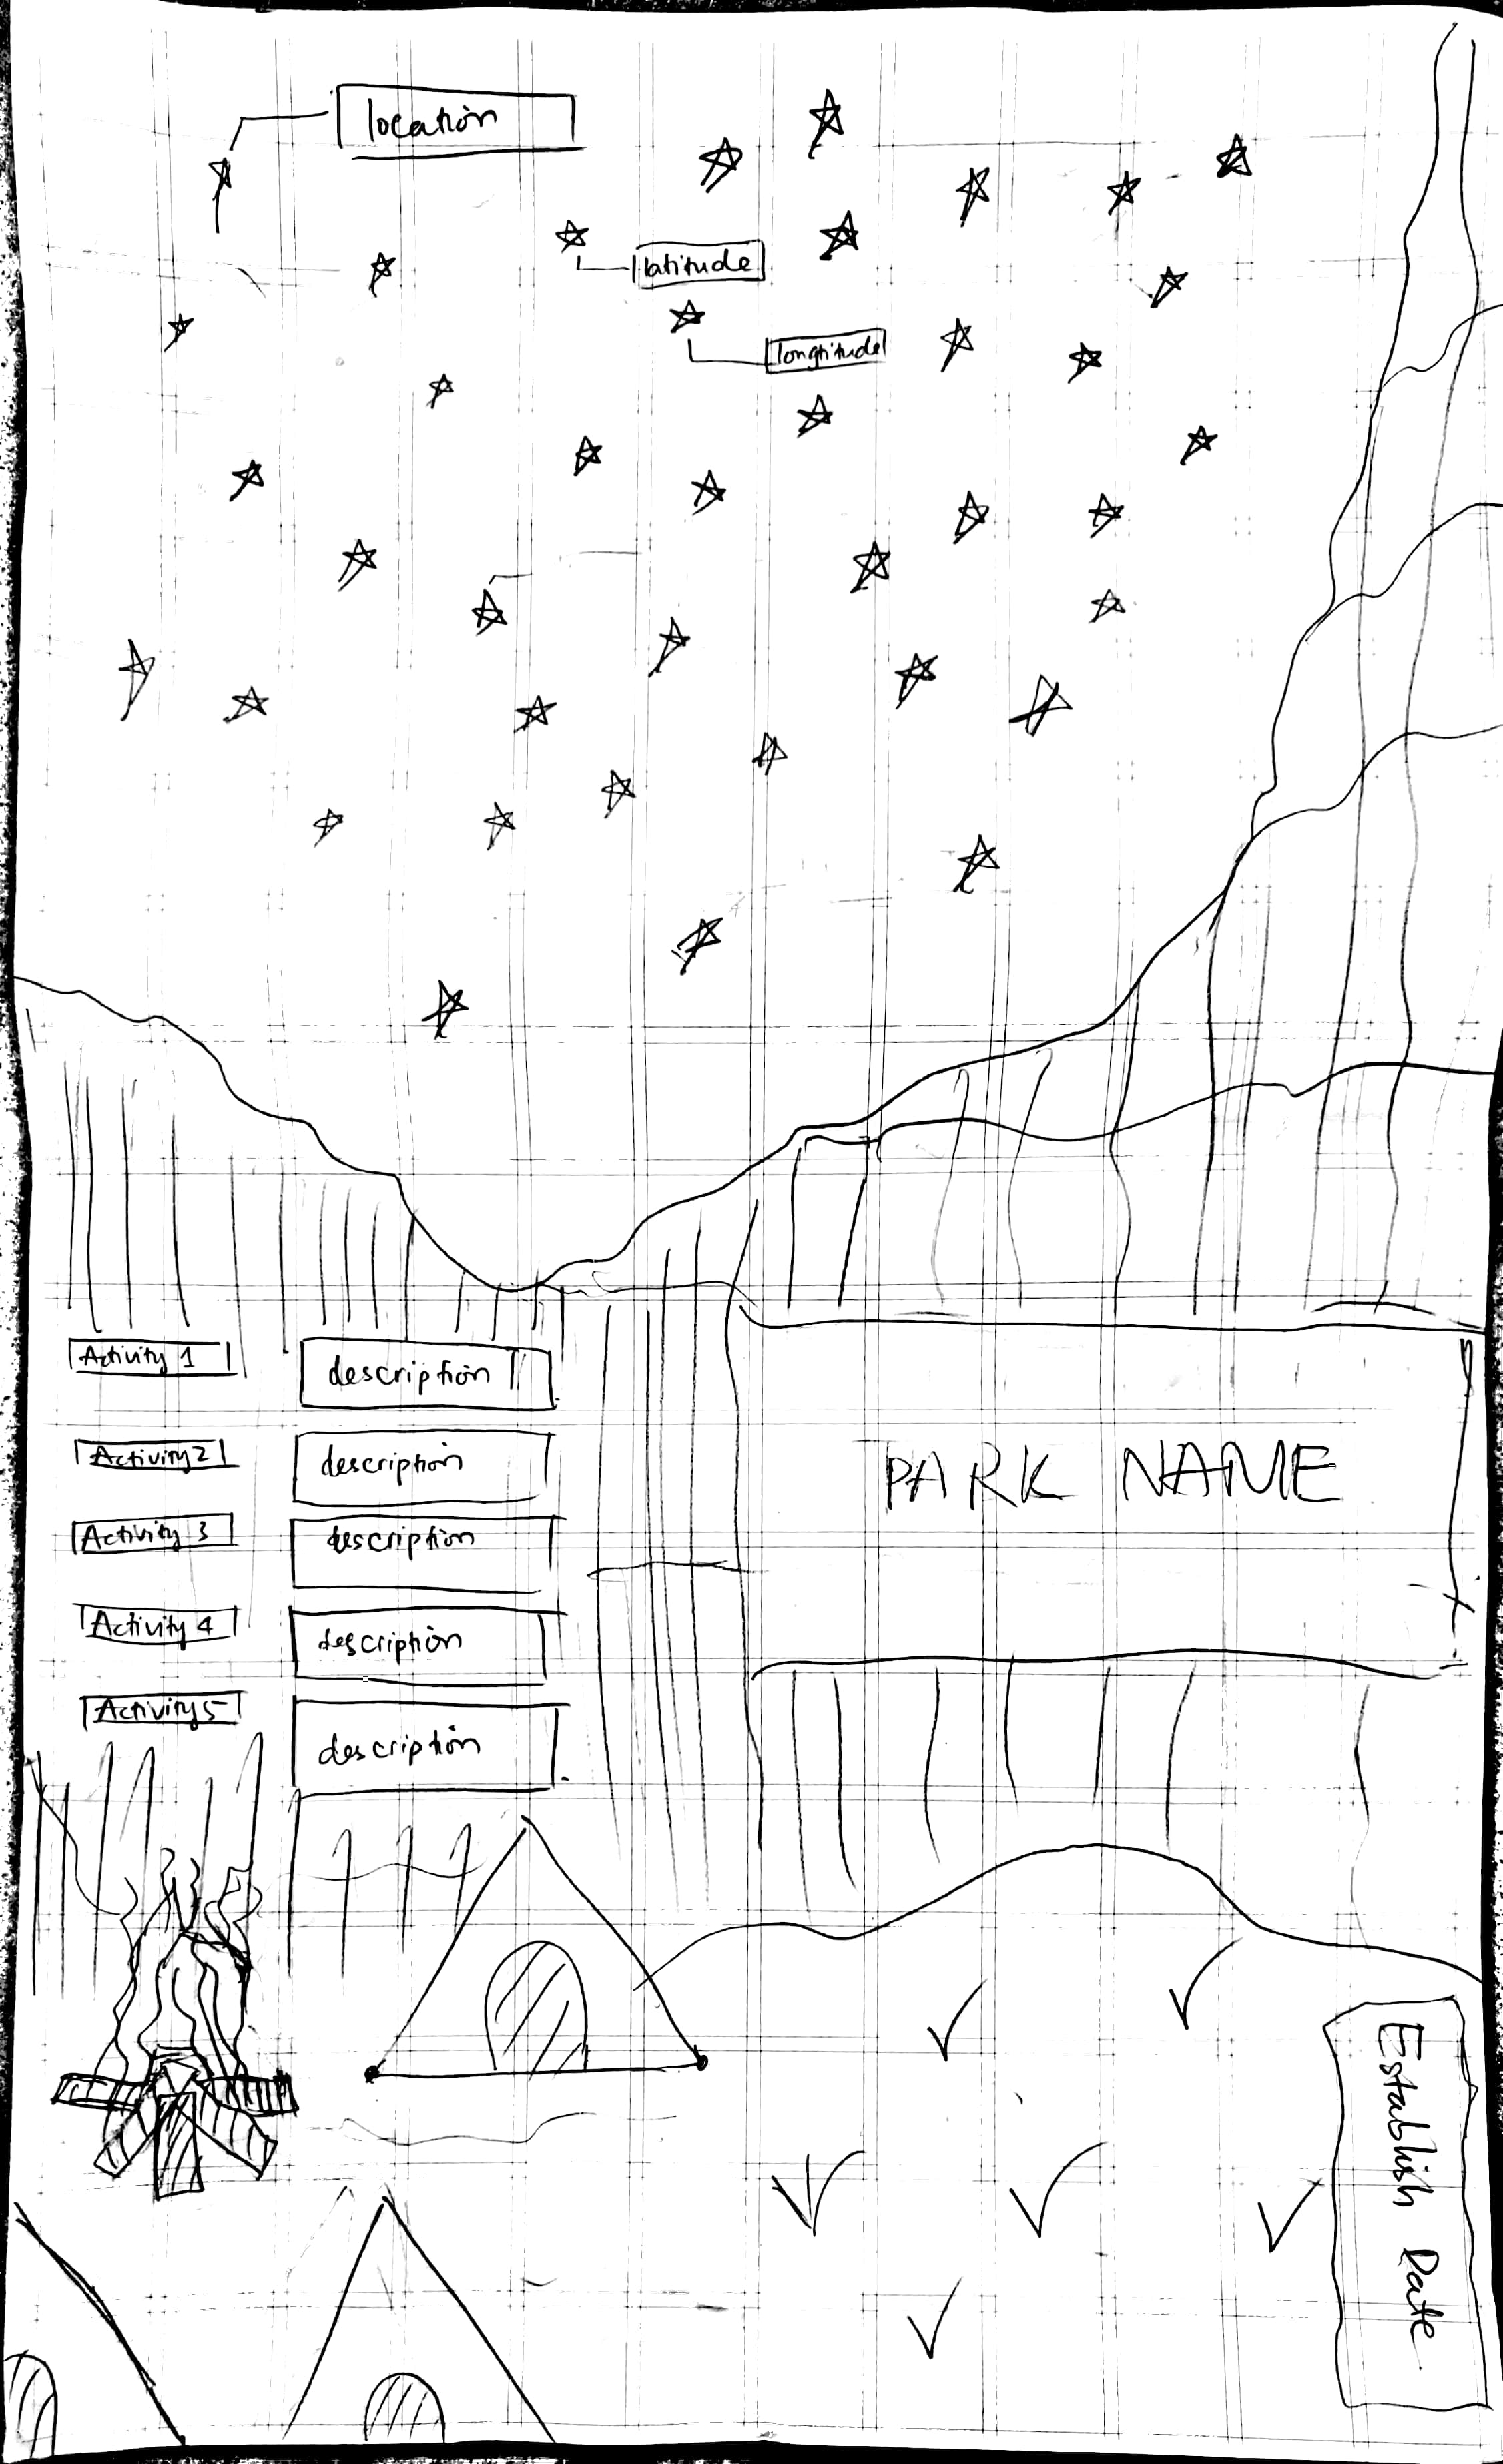 location
latitude
longtitude
Activity 1
description
Activity 2
description
Activity 3
description
Activity 4
description
Activity 5
description
PARK NAME
Establish Date